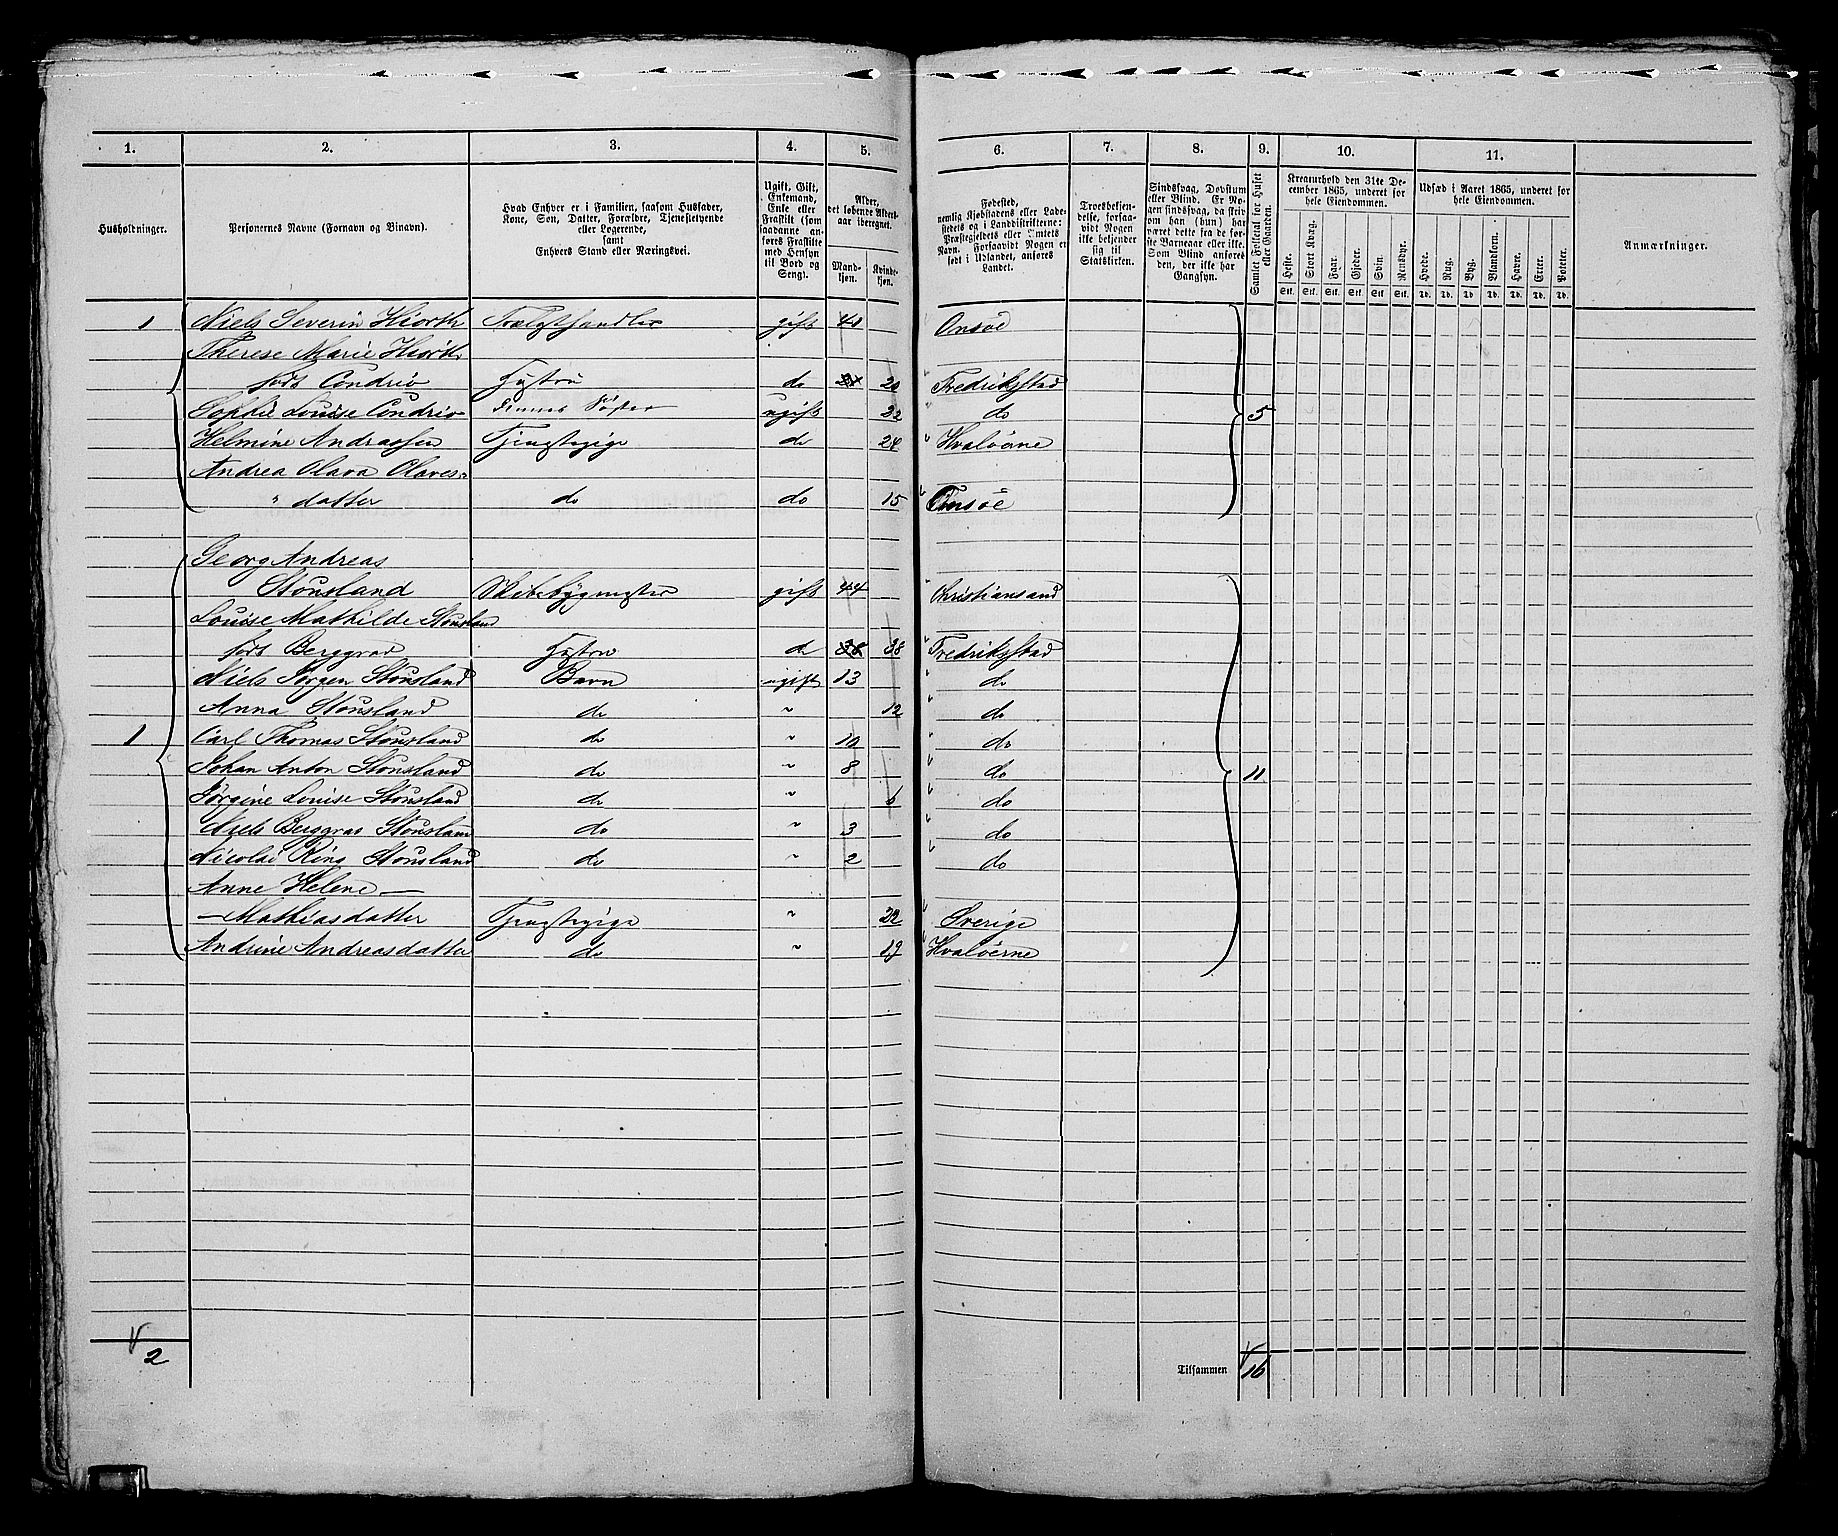 1. 2. 3. 4. 5. 6. 7. 8. 9. 10. 11.
Husholdninger.
Personernes Navne (Fornavn og Binavn).
Hvad Enhver er i Familien, saasom Husfader,
Kone, Søn, Datter, Forældre, Tjenestetyende
eller Logerende,
samt
Enhvers Stand eller Næringsvei.
Ugift, Gift,
Enkemand,
Enke eller
Fraskilt (som
saadanne an-
føres Fraskilte
med Hensyn
til Bord og
Seng).
Alder,
det løbende Alders-
aar iberegnet.
Mand-
kjøn.
Kvinde-
kjøn.
Fødested,
nemlig Kjøbstadens eller Lade-
stedets og i Landdistrikterne:
Præstegjeldets eller Amtets
Navn. Forsaavidt Nogen er
født i Udlandet, anføres
Landet.
Troesbekjen-
delse, forsaa-
vidt Nogen
ikke bekjender
sig til
Statskirken.
Sindssvag, Døvstum
eller Blind. Er No-
gen sindssvag, da skriv
om han (hun) har
været dette fra de før-
ste Barneaar eller ikke.
Som Blind anføres
den, der ikke har
Gangsyn.
Samlet Folketal for Huset
eller Gaarden.
Kreaturhold den 31te De-
cember 1865, underet for
hele Eiendommen.
Heste. Stort Kvæg. Faar. Gjeder. Svin. Rensdyr.
Stk. Stk. Stk. Stk. Stk. Stk.
Udsæd i Aaret 1865, underet for
hele Eiendommen.
Hvede. Rug. Byg. Blandkorn. Havre. Erter. Poteter.
Td. Td. Td. Td. Td. Td. Td.
Anmærkninger.
1 Niels Severin Hiorth Trælasthandler gift 40 Onsøe
Therese Marie Hiorth
føds Condrio Hustru do 20 Fredriksstad
Sophie Louise Condrio Søster ugift 22 do 5
Helmine Andreassen Tjenestepige do 24 Hvaløerne
Andrea Olava Olaves-
" datter do do 15 Onsøe
Georg Andreas
Stousland Skibsbygmester gift 44 Christiansand
Louise Mathilde Stousland
føds Berggrav Hustru do 38 38 Fredriksstad
Niels Jørgen Stousland Barn ugift 13 do
Anna Stousland do " 12 do
1 Carl Thomas Stousland do " 10 do
Johan Anton Stousland do " 8 do 11
Jørgine Louise Stousland do " 6 do
Niels Berggrav Stousland do " 3 do
Nicolai Ring Stousland do " 2 do
Anne Helene —
— Mathiasdatter Tjenestepige " 22 Sverige
Andrine Andreasdatter do " 19 Hvaløerne
2 Tilsammen 16